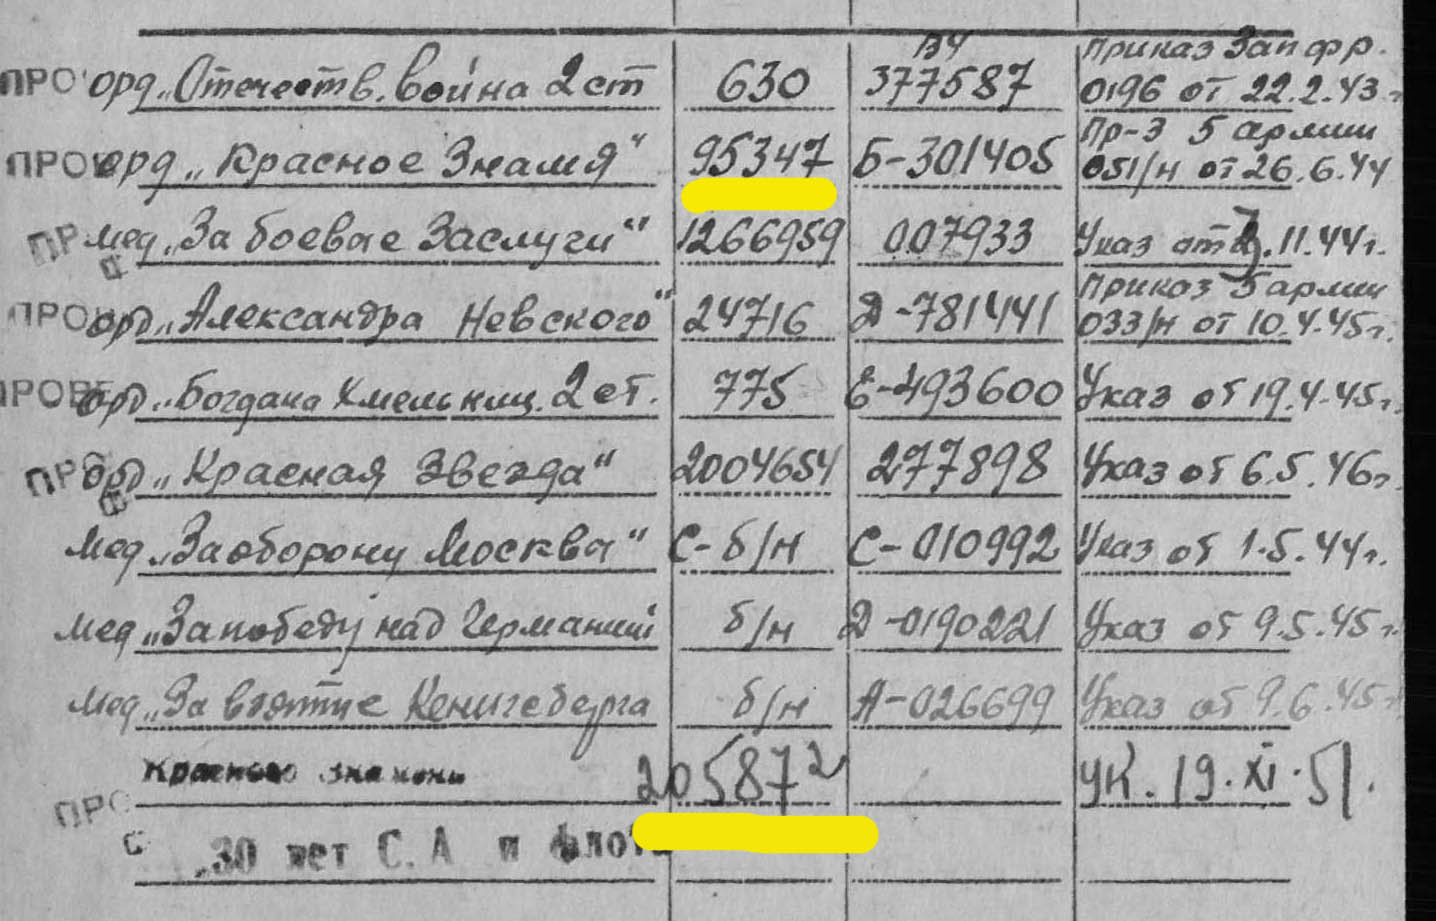 ВЧ Приказ Зап фр.
ПРОВ орд. „Отечеств. война 2 ст 630 377587 0196 от 22.2.43 г
Пр-з 5 армии
ПРОВ орд „Красное Знамя" 95347 Б-301405 051/н от 26.6.44
ПР мед „За боевые Заслуги" 1266959 007933 Указ от .11.44г.
Приказ 5 армии
ПРОВ орд „Александра Невского" 24716 Д-781441 033/н от 10.4.45г.
ПРОВЕ орд „Богдана Хмельниц. 2 ст. 775 Е-493600 Указ от 19.4.45г.
ПРО орд „Красная Звезда" 2004654 277898 Указ от 6.5.46г.
Мед „За оборону Москвы" С-б/н С-010992 Указ от 1.5.44г.
мед „За победу над Германией б/н Д-0190221 Указ от 9.5.45г.
мед „За взятие Кенигсберга б/н А-026699 Указ от 9.6.45г
Красного знамени 205872 УК. 19.XI.51.
ПРО
„30 лет С.А и флота